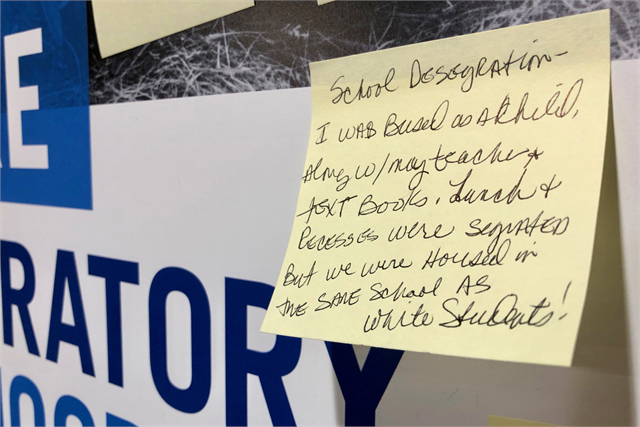 E
RATORY
School Desegration-
I was Bused as a child,
Along w/ my teacher +
text Books. Lunch &
Recesses were segrated
But we were Housed in
the same School As
white Students!